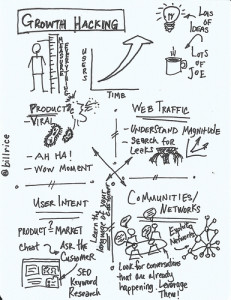 GROWTH HACKING
LOTS OF
IDEAS
MEASURE
EVERYTHING
USERS
TIME
LOTS
OF
JOE
PRODUCT
VIRAL
- AH HA!
- WOW MOMENT
WEB TRAFFIC
- UNDERSTAND MAGNITUDE
- SEARCH FOR
LEAKS
@billrice
USER INTENT
PRODUCT = MARKET
cheat → ASK THE
CUSTOMER
SEO
KEYWORD
RESEARCH
Learn the
language of your
customer
COMMUNITIES/
NETWORKS
Exploit
Networks
- Look for conversations
that are already
happening. Leverage
Them!